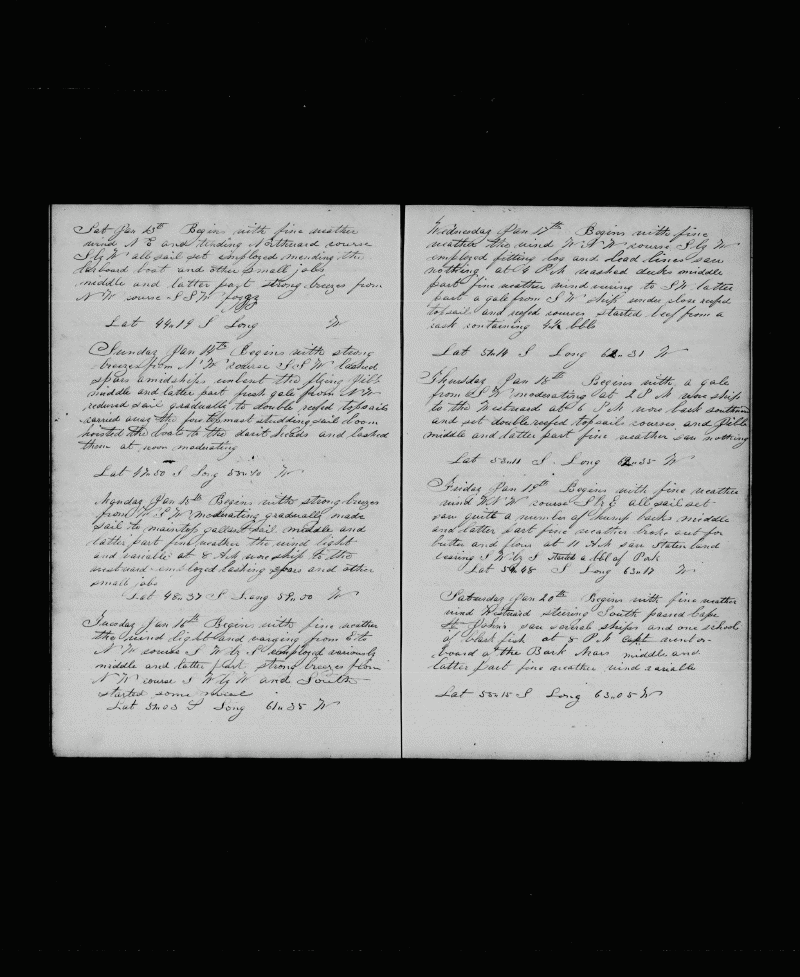 Sat Jan 13th Begins with fine weather
wind N E and tending Northward course
S by W all sail set employed mending the
larboard boat and other small jobs
middle and latter part strong breezes from
N W course S S W foggy
Lat 44-19 S Long W
Sunday Jan 14th Begins with strong
breezes from N W course S S W lashed
spars amidships unbent the flying jibb
middle and latter part fresh gale from N W
reduced sail gradually to double reefed topsails
carried away the foretopmast studding sail boom
hoisted the boats to the davit heads and lashed
them at noon moderating
Lat 47-50 S Long W
Monday Jan 15th Begins with strong breezes
from W S W moderating gradually made
sail to maintop gallant sail middle and
latter part fine weather the wind light
and variable at 8 A M wore ship to the
westward employed lashing spars and other
small jobs
Lat 48-37 S Long 59-50 W
Tuesday Jan 16th Begins with fine weather
the wind light and varying from E to
N W course S W by S employed variously
middle and latter part strong breezes from
N W course S W by W and South
started some meal
Lat 51-03 S Long 61-35 W
Wednesday Jan 17th Begins with fine
weather the wind W N W course S by W
employed fitting log and lead lines saw
nothing at 4 P M washed decks middle
part fine weather wind veering to S W latter
part a gale from S W ship under close reefed
topsail and reefed courses started beef from a
cask containing 4½ bbls
Lat 51-14 S Long 62-31 W
Thursday Jan 18th Begins with a gale
from S W moderating at 2 P M wore ship
to the Westward at 6 P M wore back southward
and set double reefed topsails courses and jibb
middle and latter part fine weather saw nothing
Lat 53-11 S Long 62-35 W
Friday Jan 19th Begins with fine weather
wind W N W course S by E all sail set
saw quite a number of hump backs middle
and latter part fine weather broke out for
butter and flour at 11 A M saw Staten land
bearing S W by S started a bbl of Pork
Lat 54-48 S Long 63-17 W
Saturday Jan 20th Begins with fine weather
wind Westward steering South passed Cape
St John's saw several ships and one school
of black fish at 8 P M Capt went on
board of the Bark Mars middle and
latter part fine weather wind variable
Lat 55-15 S Long 63-05 W